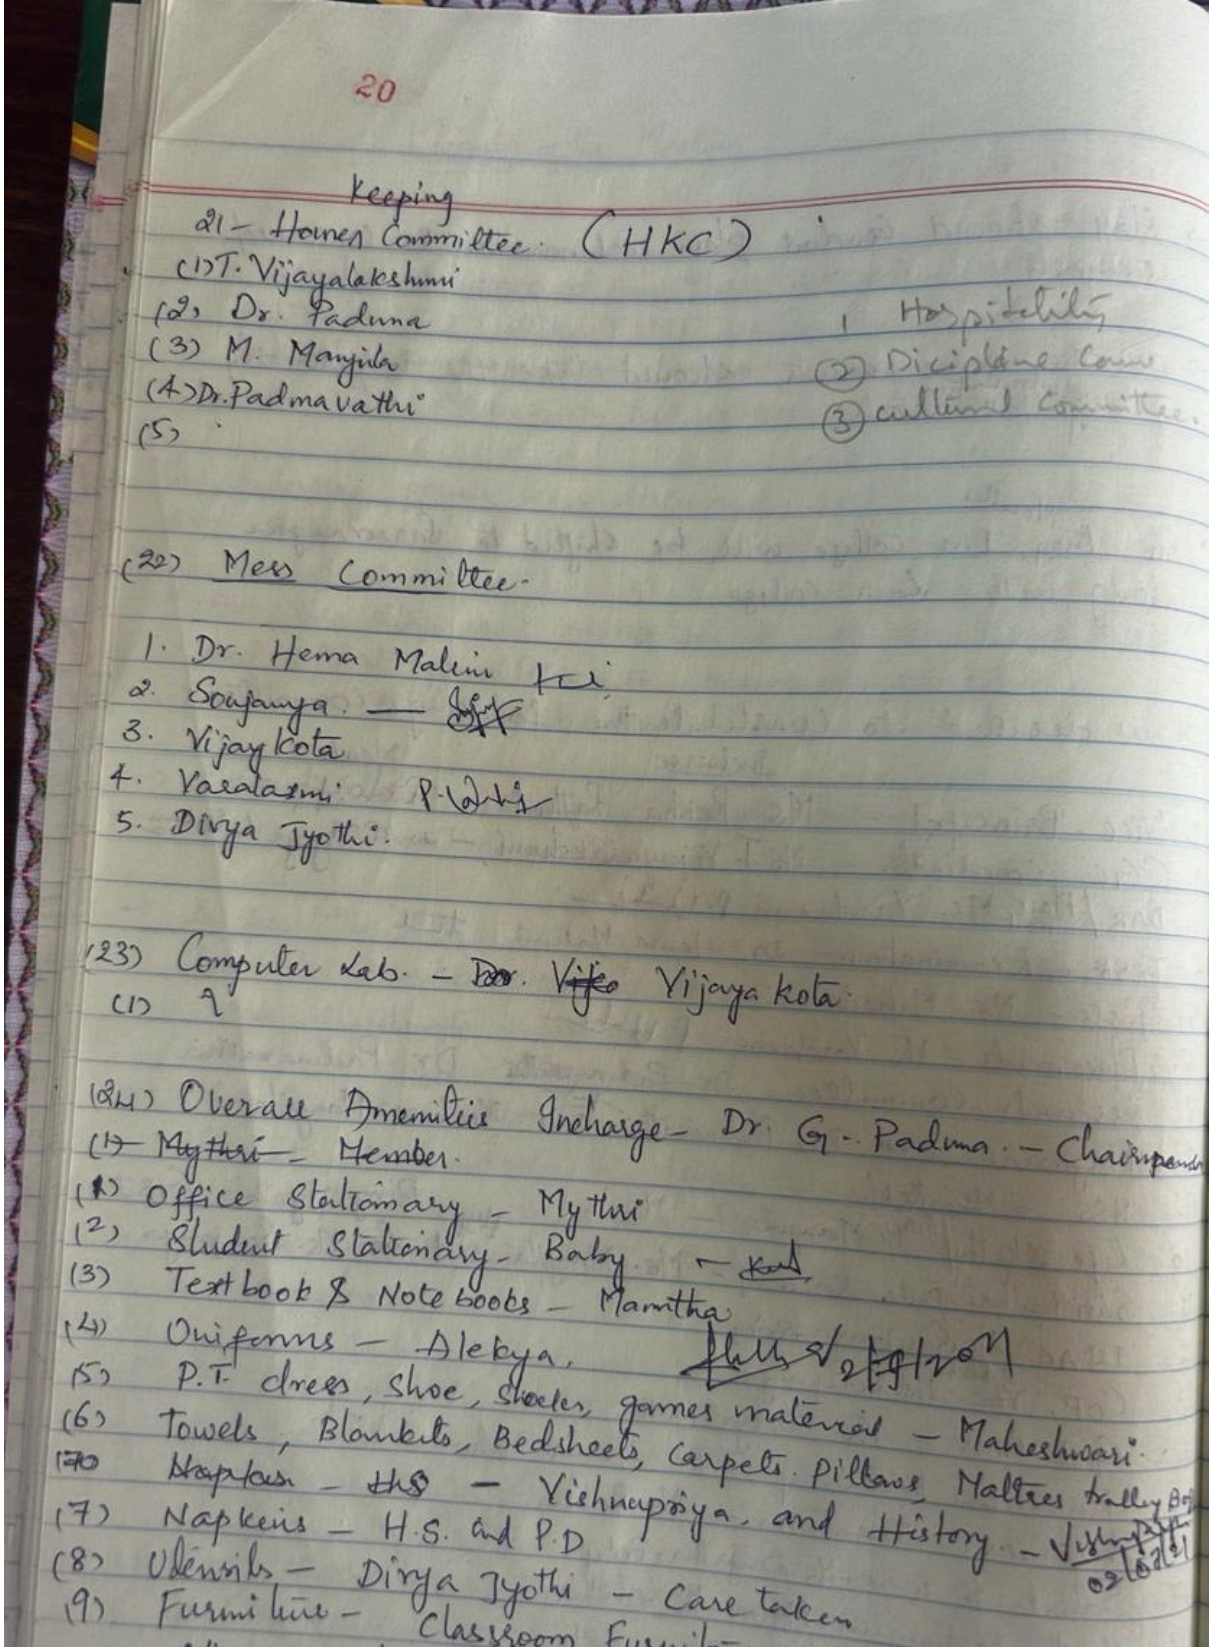 20
Keeping
21- Houses Committee. (HKC)
(1) T. Vijayalakshmi
(2) Dr. Padma
(3) M. Manjula
(4) Dr. Padmavathi
(5)
1 Hospitality
(2) Dicipline Comm
(3) cultural Committee.
(22) Mess Committee.
1. Dr. Hema Malini
2. Soujanya. —
3. Vijay Kota
4. Varalaxmi
5. Divya Jyothi.
(23) Computer Lab. - Dr. Vijaya kota.
(1)
(24) Overall Amenities Incharge - Dr. G. Padma. - Chairperson
(1) Mythri - Member.
(1) Office Stationary - Mythri
(2) Student Stationary - Baby -
(3) Textbook & Note books - Mamtha
(4) Uniforms - Alekya,
(5) P.T. dress, Shoe, Shocks, games material - Maheshwari.
(6) Towels, Blankets, Bedsheets, Carpets. Pillows, Mattres trolley
- HS - Vishnupriya, and History -
(7) Napkins - H.S. and P.D
(8) Utensils - Divya Jyothi - Care taken
(9) Furniture - Classroom